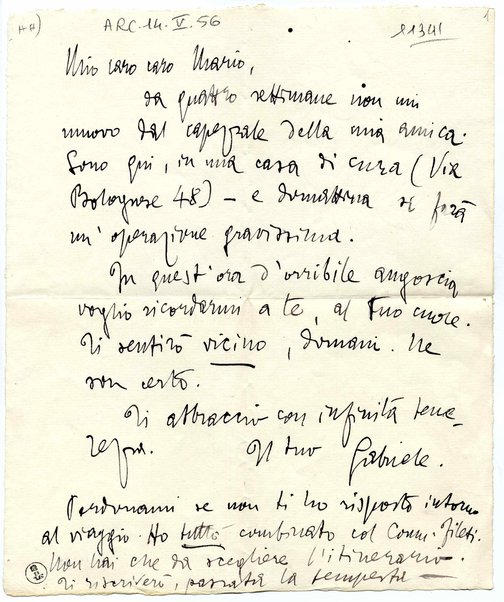 ARC. 14. V. 56
Mio caro caro Mario,
da quattro settimane non mi
muovo dal capezzale della mia amica.
Sono qui, in una casa di cura (Via
Bolognese 48) – e domattina si farà
un'operazione gravissima.
In quest'ora d'orribile angoscia
voglio ricordarmi a te, al tuo cuore.
Ti sentirò vicino, domani. Ne
son certo.
Ti abbraccio con infinita tene-
rezza. Il tuo Gabriele.
Perdonami se non ti ho risposto intorno
al viaggio. Ho tutto combinato col Comm.
Non hai che da scegliere l'itinerario.
Ti riscriverò, passata la tempesta –